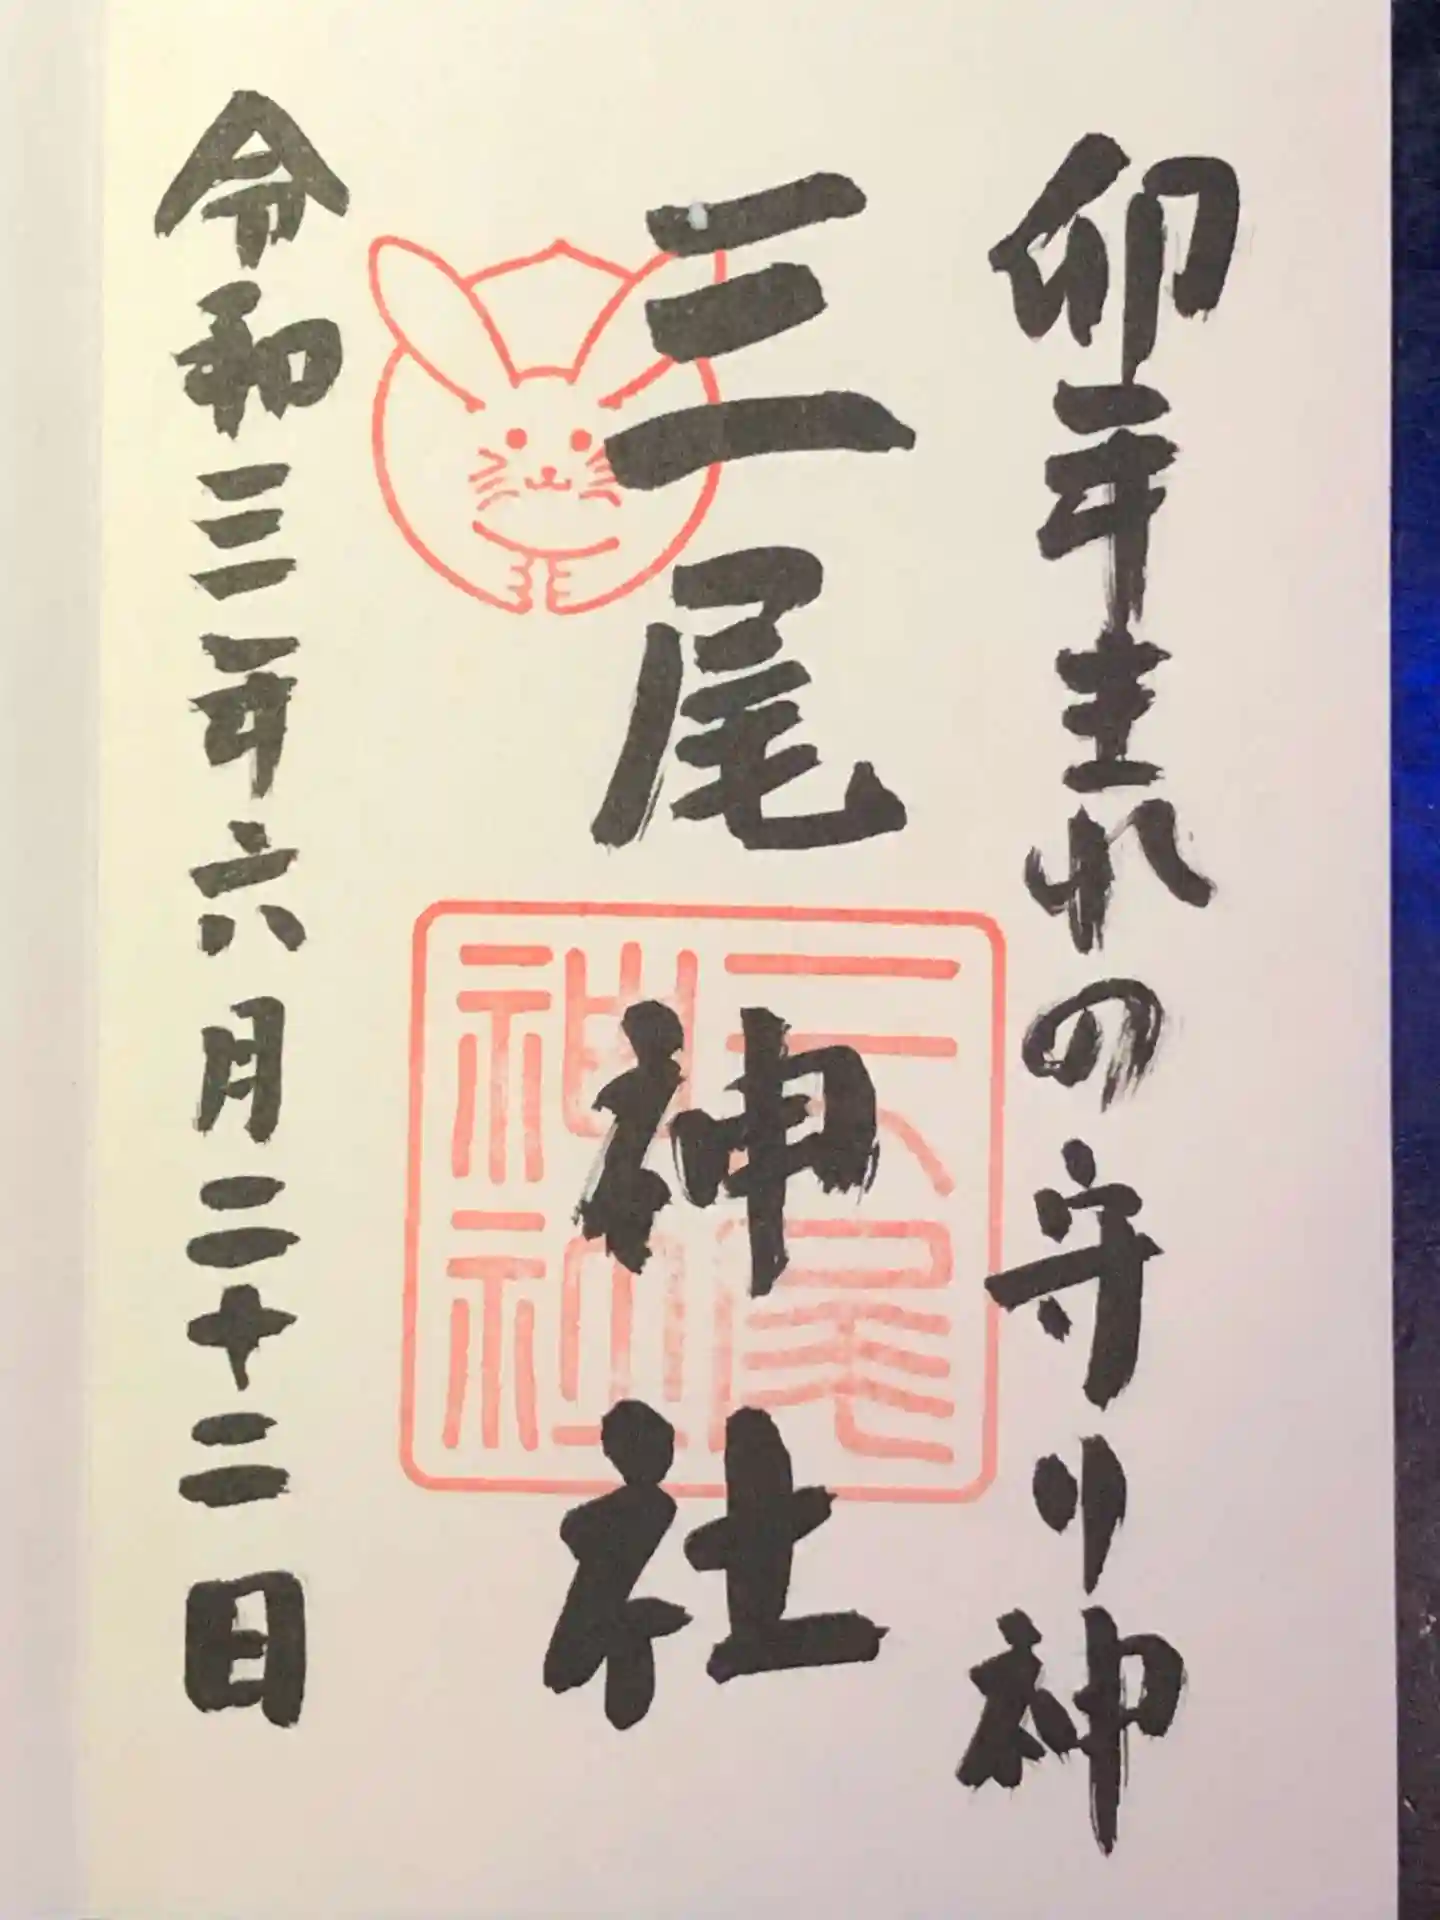 卯年生れの守り神
三尾神社
三尾
神社
令和三年六月二十二日